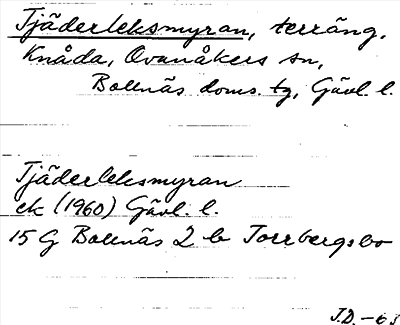 Tjäderleksmyran, terräng.
Knåda, Ovanåkers sn,
Bollnäs doms. tg, Gävl. l.
Tjäderleksmyran
ek (1960) Gävl. l.
15 G Bollnäs 2 b Torrbergsbo
J.D. -63